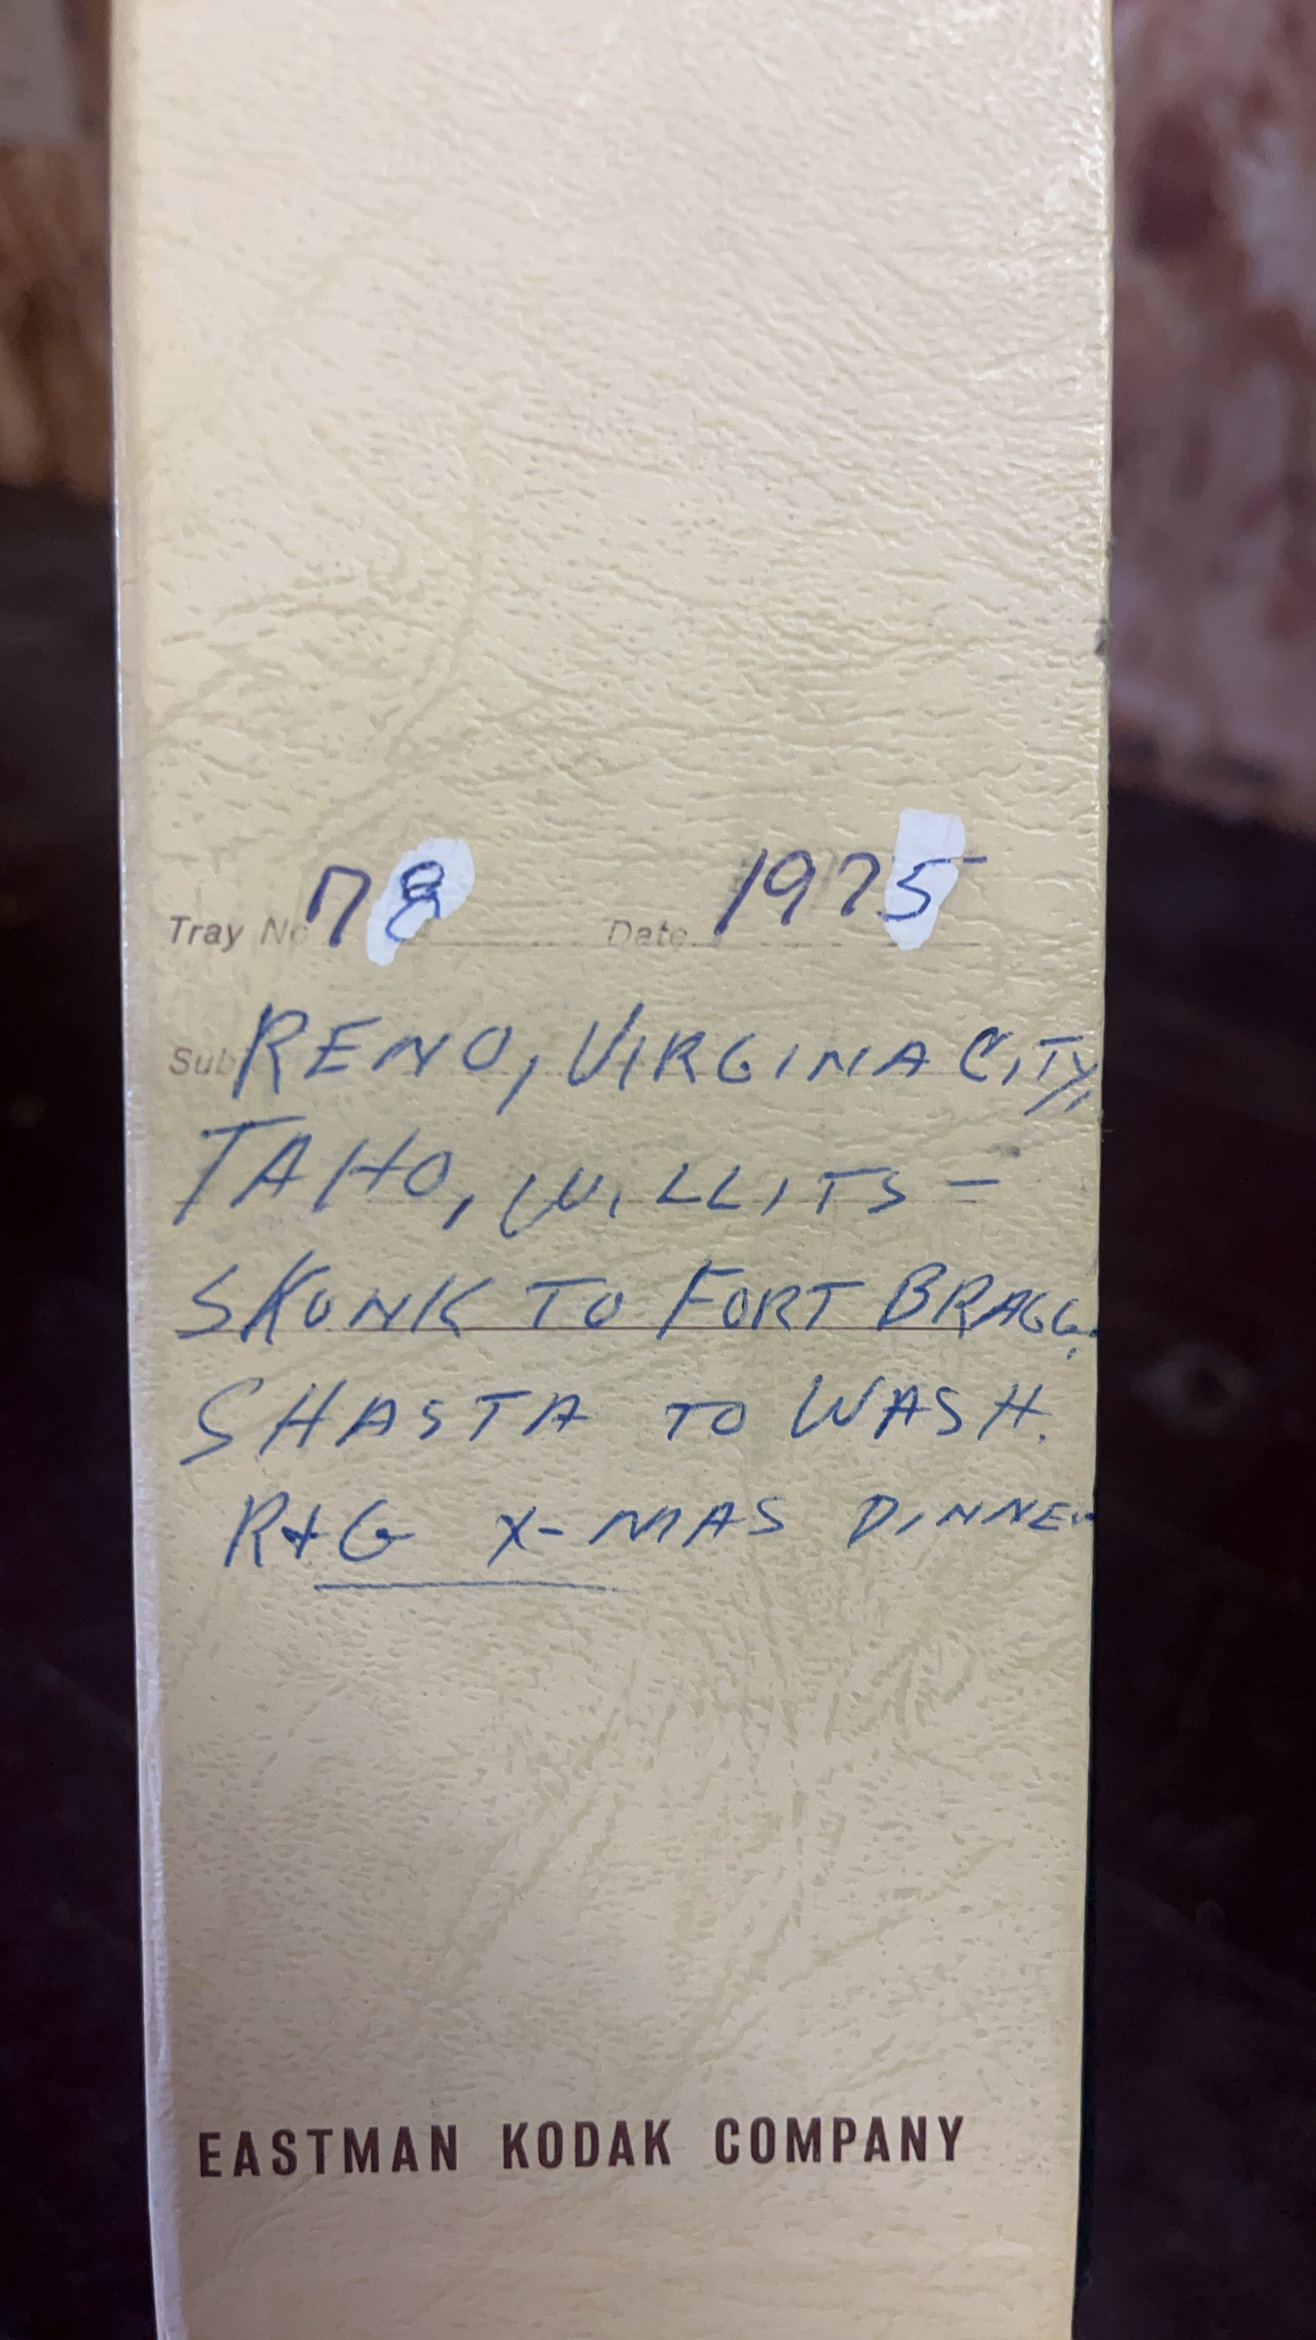 Tray No 78 Date 1975
Sub RENO, VIRGINA CITY,
TAHO, WILLITS -
SKUNK TO FORT BRAGG.
SHASTA TO WASH.
R+G X-MAS DINNER
EASTMAN KODAK COMPANY